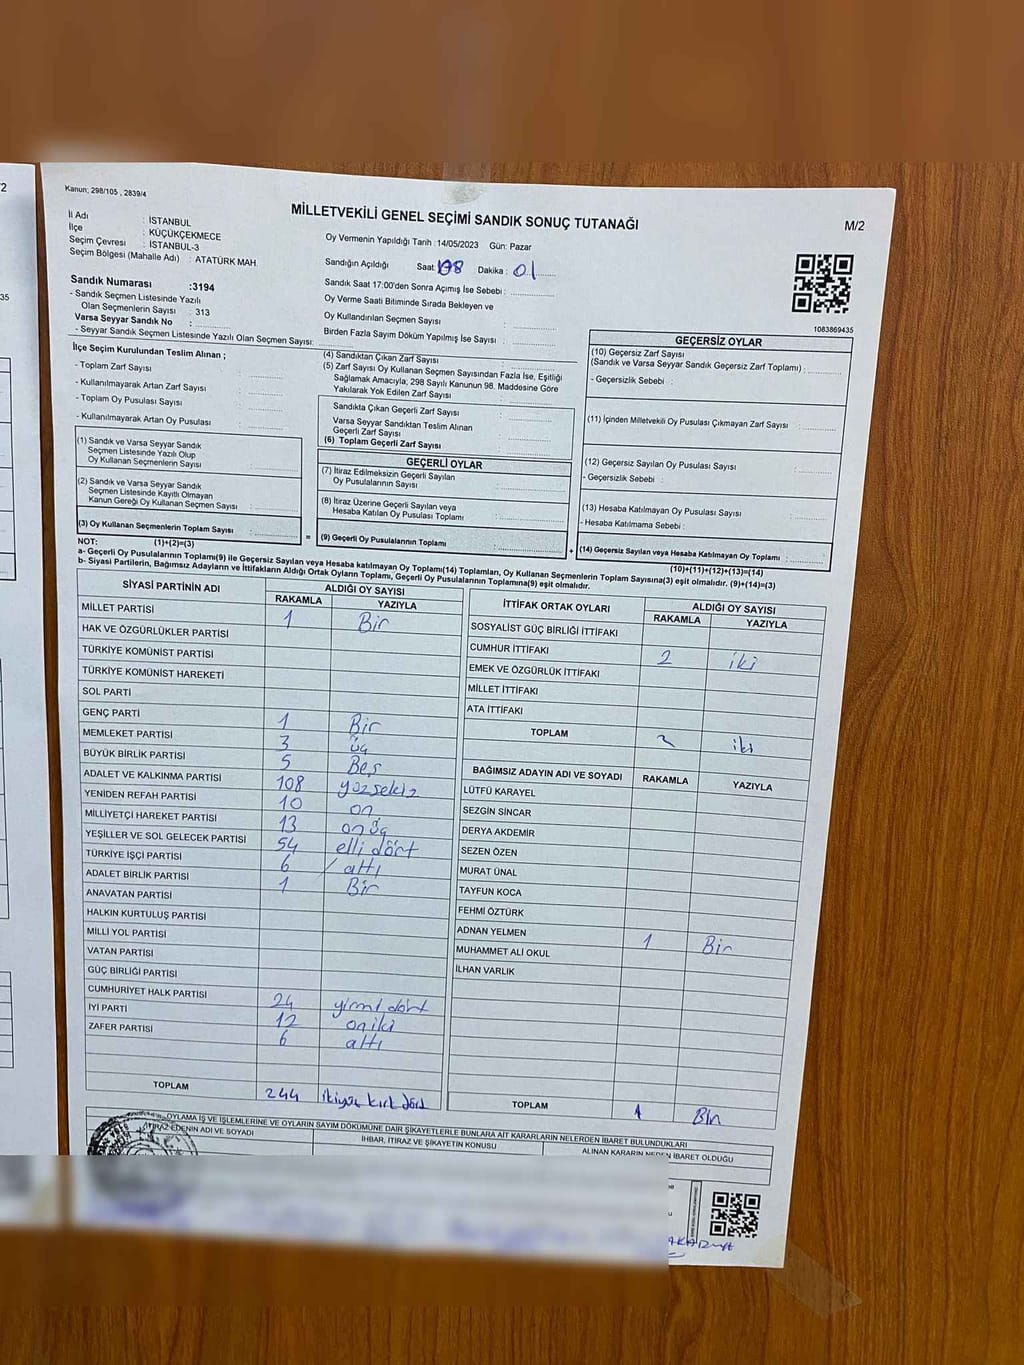 /2
35
Kanun; 298/105 , 2839/4
MİLLETVEKİLİ GENEL SEÇİMİ SANDIK SONUÇ TUTANAĞI
M/2
İl Adı : İSTANBUL
İlçe : KÜÇÜKÇEKMECE
Seçim Çevresi : İSTANBUL-3
Seçim Bölgesi (Mahalle Adı) : ATATÜRK MAH.
Oy Vermenin Yapıldığı Tarih : 14/05/2023 Gün: Pazar
Sandığın Açıldığı Saat Dakika : 01
Sandık Saat 17:00'den Sonra Açımış İse Sebebi :
Oy Verme Saati Bitiminde Sırada Bekleyen ve
Oy Kullandırılan Seçmen Sayısı :
Birden Fazla Sayım Döküm Yapılmış İse Sayısı :
Sandık Numarası :3194
- Sandık Seçmen Listesinde Yazılı
Olan Seçmenlerin Sayısı : 313
Varsa Seyyar Sandık No :
- Seyyar Sandık Seçmen Listesinde Yazılı Olan Seçmen Sayısı:
1083869435
İlçe Seçim Kurulundan Teslim Alınan ;
- Toplam Zarf Sayısı :
- Kullanılmayarak Artan Zarf Sayısı :
- Toplam Oy Pusulası Sayısı :
- Kullanılmayarak Artan Oy Pusulası :
(1) Sandık ve Varsa Seyyar Sandık
Seçmen Listesinde Yazılı Olup
Oy Kullanan Seçmenlerin Sayısı :
(2) Sandık ve Varsa Seyyar Sandık
Seçmen Listesinde Kayıtlı Olmayan
Kanun Gereği Oy Kullanan Seçmen Sayısı :
(3) Oy Kullanan Seçmenlerin Toplam Sayısı :
(4) Sandıktan Çıkan Zarf Sayısı :
(5) Zarf Sayısı Oy Kullanan Seçmen Sayısından Fazla İse, Eşitliği
Sağlamak Amacıyla; 298 Sayılı Kanunun 98. Maddesine Göre
Yakılarak Yok Edilen Zarf Sayısı :
Sandıkta Çıkan Geçerli Zarf Sayısı :
Varsa Seyyar Sandıktan Teslim Alınan
Geçerli Zarf Sayısı :
(6) Toplam Geçerli Zarf Sayısı :
GEÇERLİ OYLAR
(7) İtiraz Edilmeksizin Geçerli Sayılan
Oy Pusulalarının Sayısı :
(8) İtiraz Üzerine Geçerli Sayılan veya
Hesaba Katılan Oy Pusulası Toplamı :
= (9) Geçerli Oy Pusulalarının Toplamı :
GEÇERSİZ OYLAR
(10) Geçersiz Zarf Sayısı
(Sandık ve Varsa Seyyar Sandık Geçersiz Zarf Toplamı) :
- Geçersizlik Sebebi :
(11) İçinden Milletvekili Oy Pusulası Çıkmayan Zarf Sayısı :
(12) Geçersiz Sayılan Oy Pusulası Sayısı :
- Geçersizlik Sebebi :
(13) Hesaba Katılmayan Oy Pusulası Sayısı :
- Hesaba Katılmama Sebebi :
+ (14) Geçersiz Sayılan veya Hesaba Katılmayan Oy Toplamı :
NOT: (1)+(2)=(3) (10)+(11)+(12)+(13)=(14)
a- Geçerli Oy Pusulalarının Toplamı(9) ile Geçersiz Sayılan veya Hesaba katılmayan Oy Toplamı(14) Toplamları, Oy Kullanan Seçmenlerin Toplam Sayısına(3) eşit olmalıdır. (9)+(14)=(3)
b- Siyasi Partilerin, Bağımsız Adayların ve İttifakların Aldığı Ortak Oyların Toplamı, Geçerli Oy Pusulalarının Toplamına(9) eşit olmalıdır.
SİYASİ PARTİNİN ADI ALDIĞI OY SAYISI
RAKAMLA YAZIYLA
MİLLET PARTİSİ 1 Bir
HAK VE ÖZGÜRLÜKLER PARTİSİ
TÜRKİYE KOMÜNİST PARTİSİ
TÜRKİYE KOMÜNİST HAREKETİ
SOL PARTİ
GENÇ PARTİ 1 Bir
MEMLEKET PARTİSİ 3 üç
BÜYÜK BİRLİK PARTİSİ 5 Beş
ADALET VE KALKINMA PARTİSİ 108 yüzsekiz
YENİDEN REFAH PARTİSİ 10 on
MİLLİYETÇİ HAREKET PARTİSİ 13 onüç
YEŞİLLER VE SOL GELECEK PARTİSİ 54 elli dört
TÜRKİYE İŞÇİ PARTİSİ 6 altı
ADALET BİRLİK PARTİSİ 1 Bir
ANAVATAN PARTİSİ
HALKIN KURTULUŞ PARTİSİ
MİLLİ YOL PARTİSİ
VATAN PARTİSİ
GÜÇ BİRLİĞİ PARTİSİ
CUMHURİYET HALK PARTİSİ 24 yirmi dört
İYİ PARTİ 12 oniki
ZAFER PARTİSİ 6 altı
TOPLAM 244 ikiyüz kırk dört
İTTİFAK ORTAK OYLARI ALDIĞI OY SAYISI
RAKAMLA YAZIYLA
SOSYALİST GÜÇ BİRLİĞİ İTTİFAKI
CUMHUR İTTİFAKI 2 iki
EMEK VE ÖZGÜRLÜK İTTİFAKI
MİLLET İTTİFAKI
ATA İTTİFAKI
TOPLAM 2 iki
BAĞIMSIZ ADAYIN ADI VE SOYADI RAKAMLA YAZIYLA
LÜTFÜ KARAYEL
SEZGİN SİNCAR
DERYA AKDEMİR
SEZEN ÖZEN
MURAT ÜNAL
TAYFUN KOCA
FEHMİ ÖZTÜRK
ADNAN YELMEN 1 Bir
MUHAMMET ALİ OKUL
İLHAN VARLIK
TOPLAM 1 Bir
OYLAMA İŞ VE İŞLEMLERİNE VE OYLARIN SAYIM DÖKÜMÜNE DAİR ŞİKAYETLERLE BUNLARA AİT KARARLARIN NELERDEN İBARET BULUNDUKLARI
İTİRAZ EDENİN ADI VE SOYADI İHBAR, İTİRAZ VE ŞİKAYETİN KONUSU ALINAN KARARIN NEDEN İBARET OLDUĞU